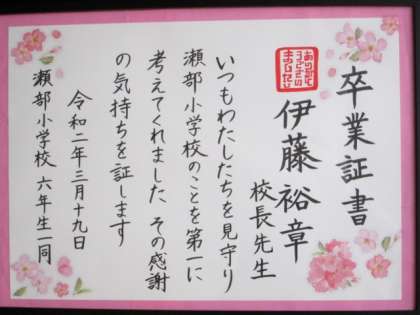 卒業証書
伊藤裕章
校長先生
いつもわたしたちを見守り
瀬部小学校のことを第一に
考えてくれました その感謝
の気持ちを証します
令和二年三月十九日
瀬部小学校 六年生一同